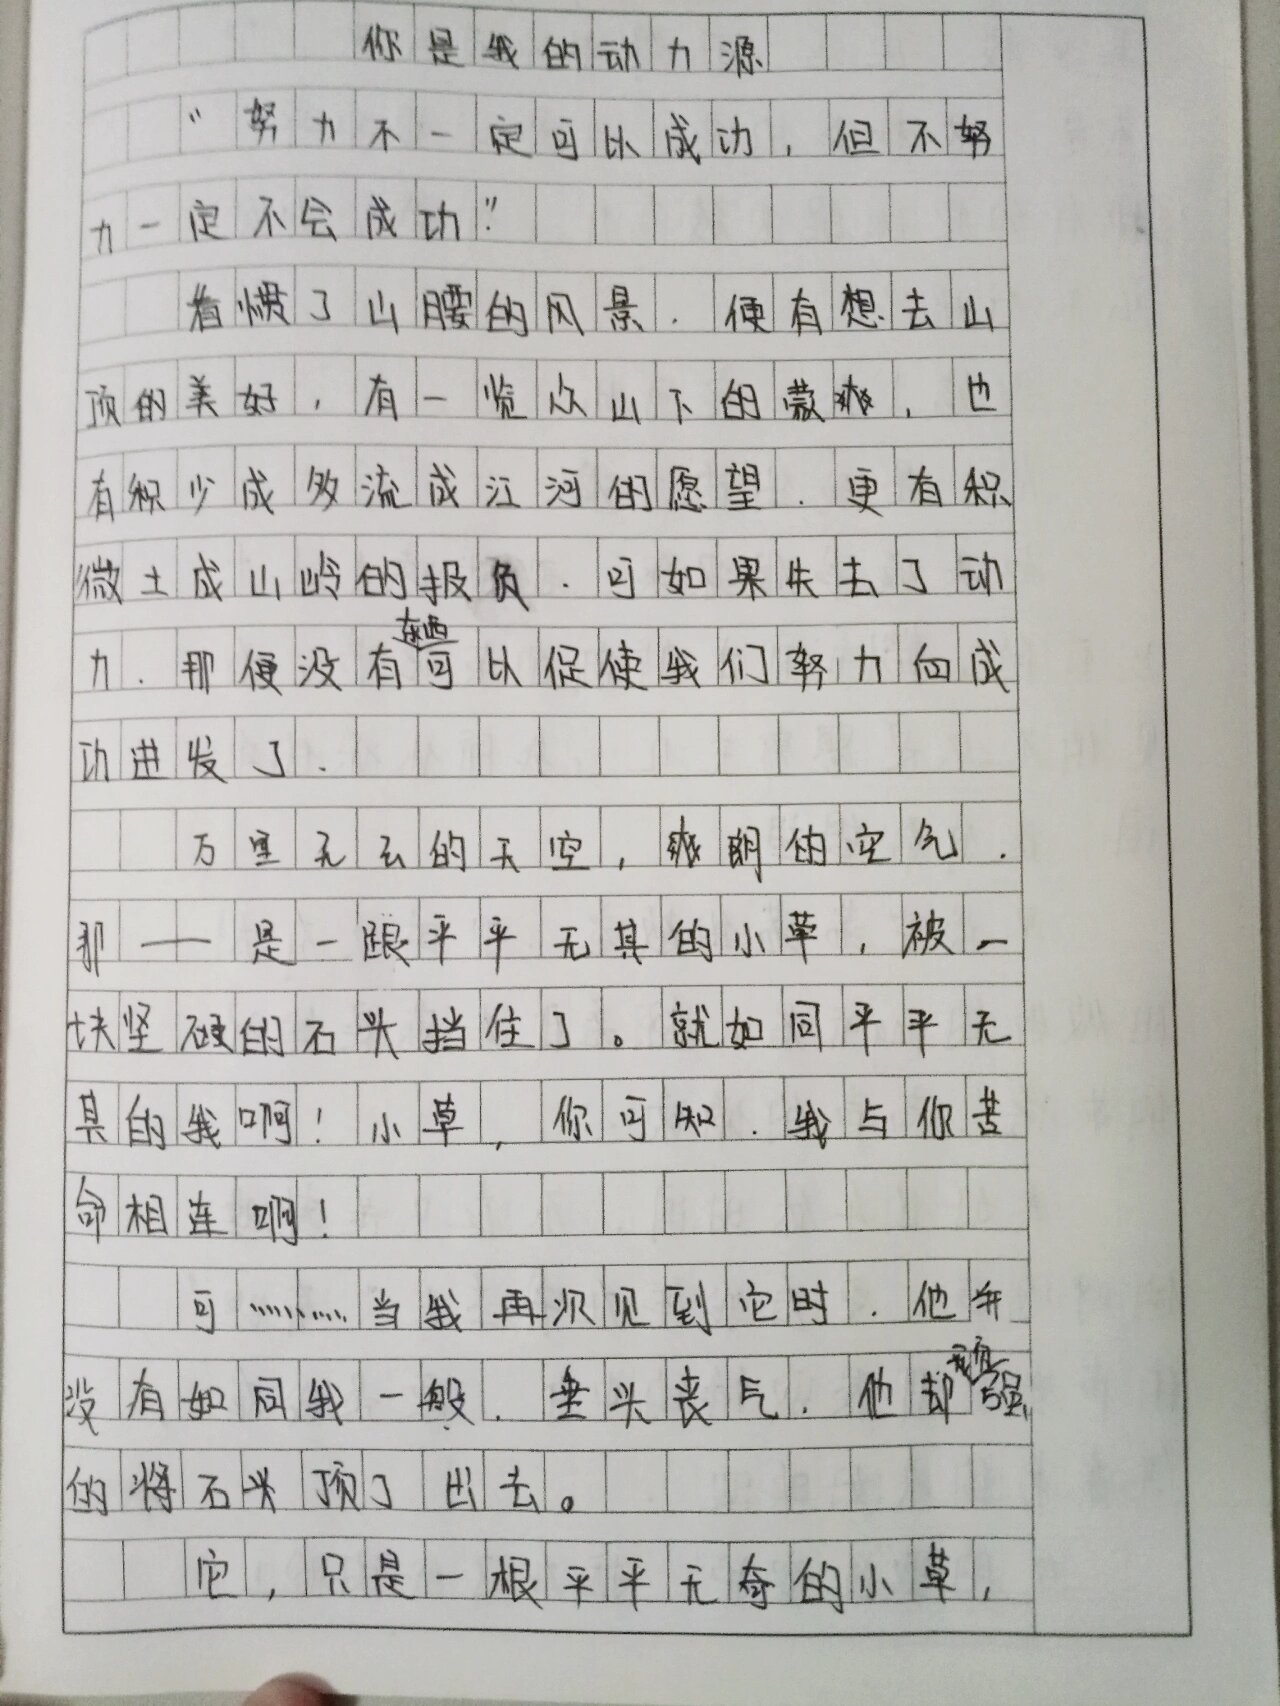 你是我的动力源
“努力不一定可以成功，但不努
力一定不会成功”
看惯了山腰的风景.便有想去山
顶的美好，有一览众山下的豪爽，也
有积少成多流成江河的愿望.更有积
微土成山岭的报负.可如果失去了动
力.那便没有东西可以促使我们努力向成
功进发了.
万里无云的天空，爽朗的空气.
那——是一跟平平无其的小草，被一
块坚硬的石头挡住了。就如同平平无
其的我啊！小草，你可知.我与你苦
命相连啊！
可………当我再次见到它时.他并
没有如同我一般.垂头丧气.他却顽强
的将石头顶了出去。
它，只是一根平平无奇的小草，